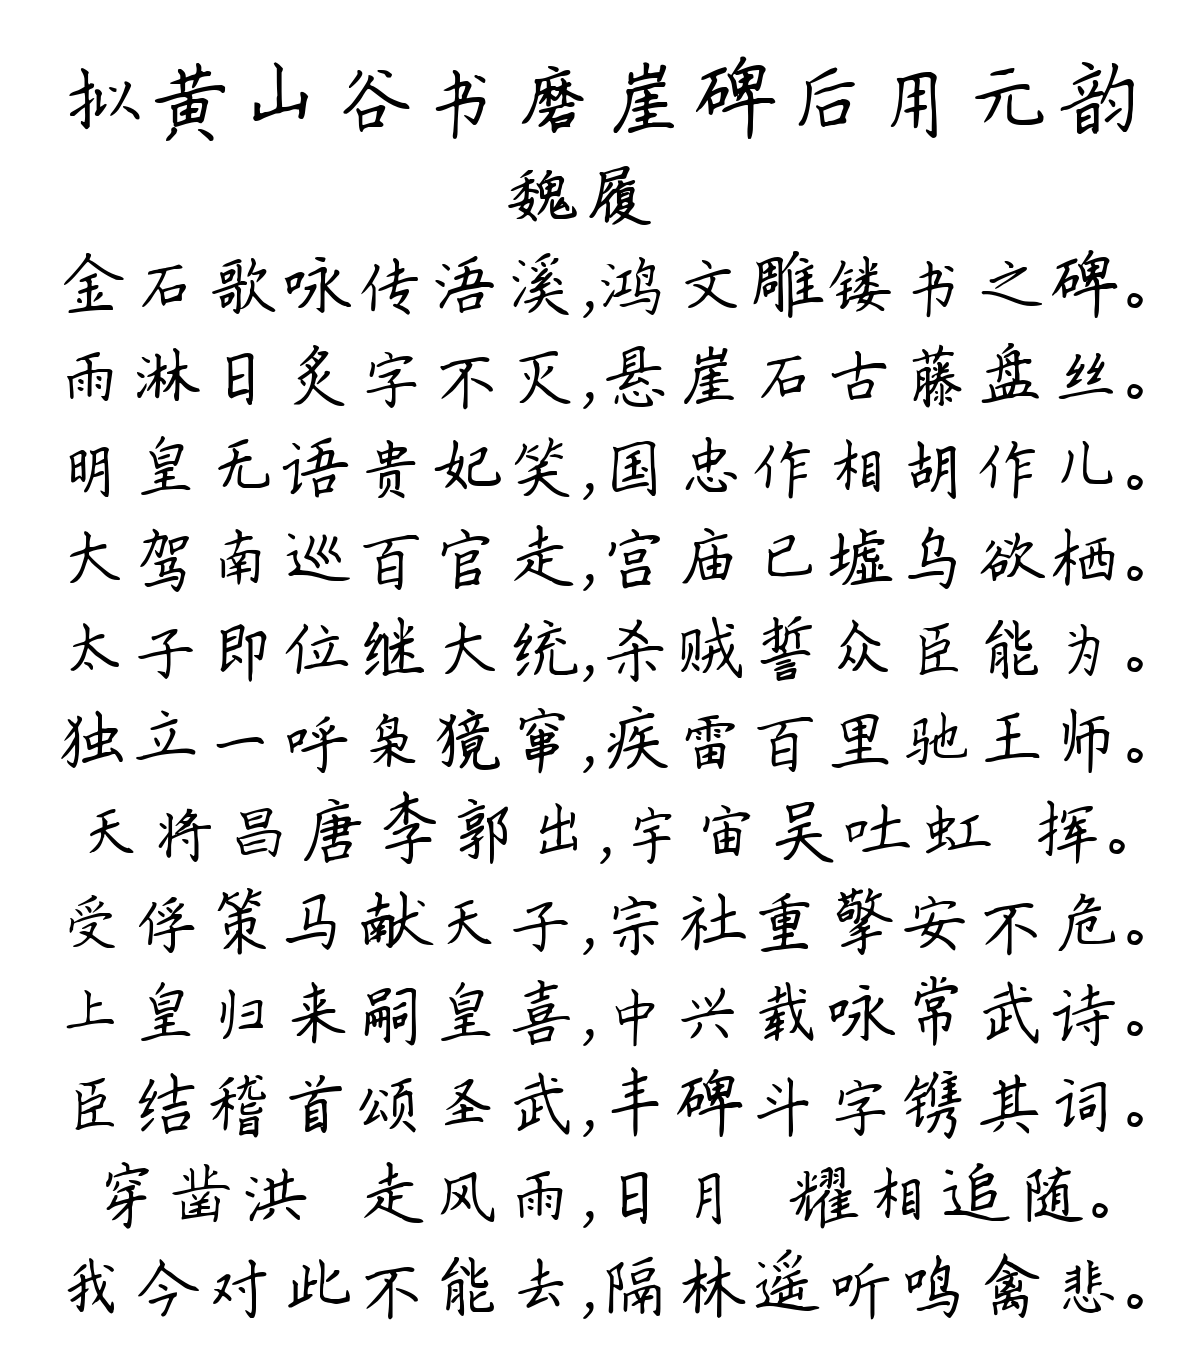 拟黄山谷书磨崖碑后用元韵
魏履
金石歌咏传浯溪,鸿文雕镂书之碑。
雨淋日炙字不灭,悬崖石古藤盘丝。
明皇无语贵妃笑,国忠作相胡作儿。
大驾南巡百官走,宫庙已墟乌欲栖。
太子即位继大统,杀贼誓众臣能为。
独立一呼枭獍窜,疾雷百里驰王师。
天将昌唐李郭出,宇宙吴吐虹 挥。
受俘策马献天子,宗社重擎安不危。
上皇归来嗣皇喜,中兴载咏常武诗。
臣结稽首颂圣武,丰碑斗字镌其词。
穿凿洪 走风雨,日月 耀相追随。
我今对此不能去,隔林遥听鸣禽悲。